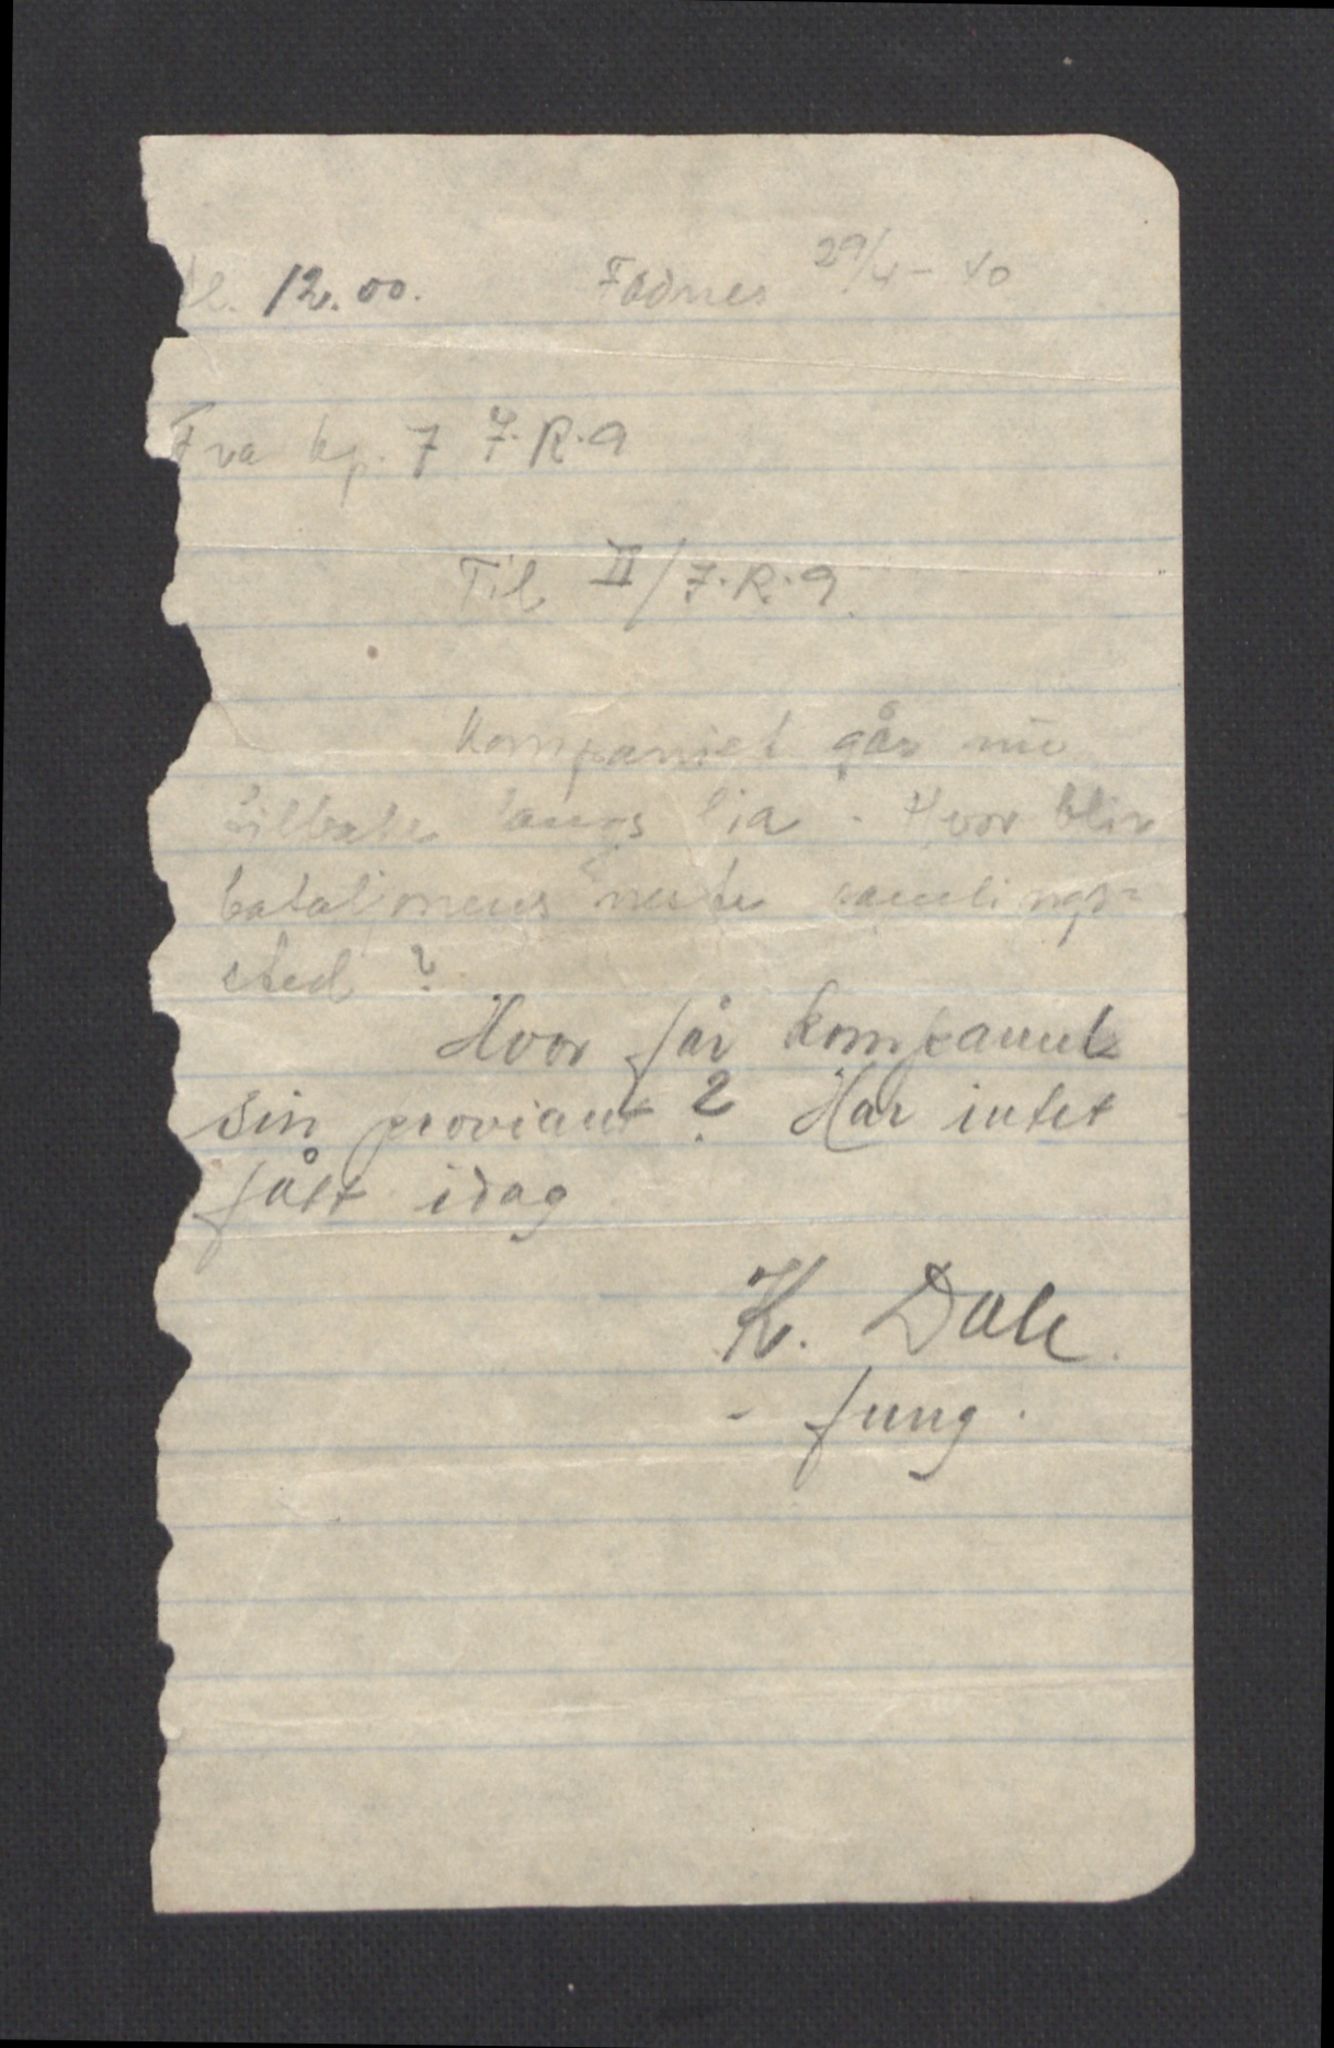 Kl. 12.00. Fadnes 29/4-40
Fra kp. 7 I.R.9
Til II/I.R.9.
Kompaniet går nu
tilbake langs lia. Hvor blir
bataljonens neste samlings=
sted?
Hvor får kompaniet
sin proviant? Har intet
fått idag
K. Dale.
- fung.